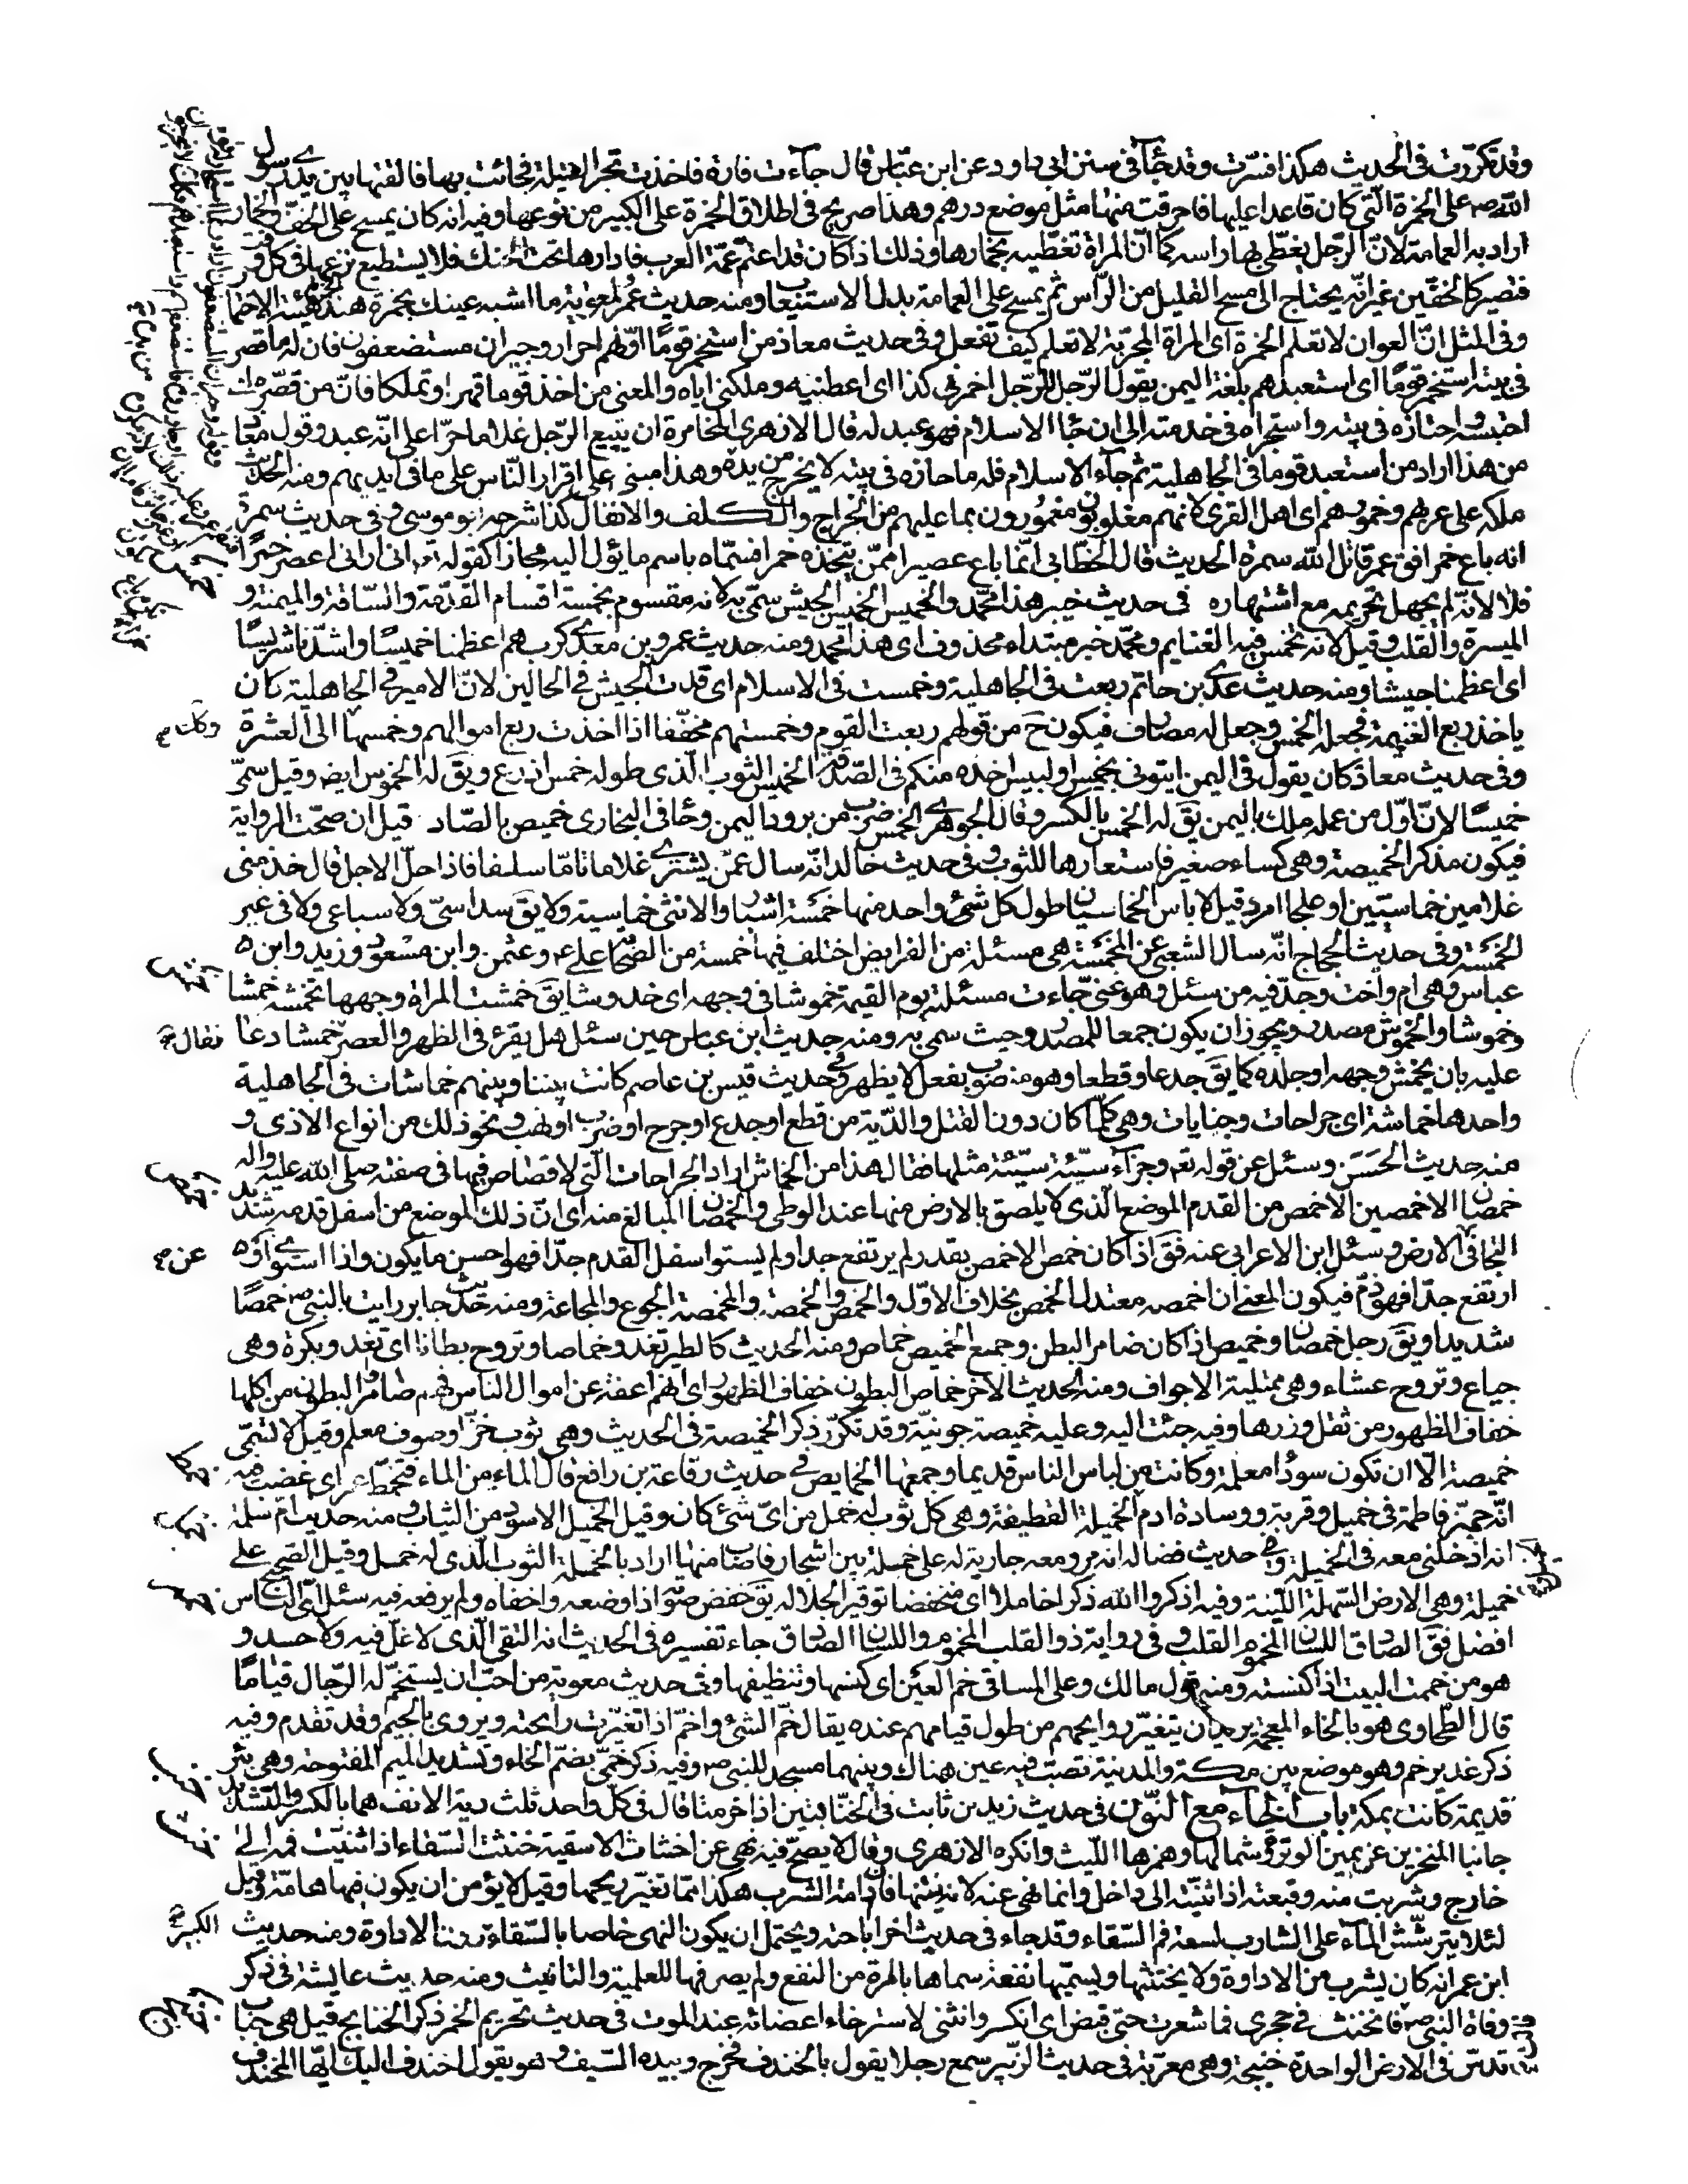 وقد تكررت فى الحديث هكذا فسّرت وقد جآء فى سنن ابى داود عن ابن عبّاس قال جآءت فارة فاخذت تجر الفتيلة فجائت بها فالقتها بين يدى رسول
اللّه ص على الخمرة التى كان قاعدا عليها فاحرقت منها مثل موضع درهم وهذا صريح فى اطلاق الخمرة على الكبير من نوعها وفيه انه كان يمسح على الخفّ والخمار
اراد به العمامة لانّ الرّجل يغطّى بها راسه كما انّ المراة تغطّيه بخمارها وذلك اذا كان قد اعتمّ عمّة العرب فادارها تحت الحنك فلا يستطيع نزعها فى كل وقت
فتصير كالخفّين غير انّه يحتاج الى مسح القليل من الرّاس ثم يمسح على العمامة بدل الاستيعاب ومنه حديث عمرو لمعوية ما اشبه عينك بخمرة هند الخمرة هيئة الاختمار
وفى المثل انّ العوان لا تعلم الخمرة اى المراة المجرّبة لا تعلم كيف تفعل وفى حديث معاذ من استخمر قوما اوّلهم احرار وجيران مستضعفون فان له ما قصر
فى بيته استخمر قومًا اى استعبدهم بلغة اليمن يقول الرّجل للرّجل اخمرنى كذا اى اعطنيه وملكنى اياه والمعنى من اخذ قوما قهرا وتملكا فانّ من قصّره اى
احتبسه واحتازه فى بيته واستجراه فى خدمته الى ان جآء الاسلام فهو عبد له قال الازهرى المخامرة ان يبيع الرّجل غلاما حرّا على انّه عبد وقول معاذ
من هذا اراد من استعبد قوما فى الجاهلية ثم جآء الاسلام فله ما حازه فى بيته لا يخرج من يده وهذا مبنى على اقرار النّاس على ما فى ايديهم ومنه الحديث
ملكه على عربهم وخمورهم اى اهل القرى لانهم مغلوبون مغمورون بما عليهم من الخراج والكلف والاثقال كذا شرحه ابو موسى وفى حديث سمرة
انه باع خمرا فق عمر قاتل اللّه سمرة الحديث قال الخطّابى انّما باع عصيرا ممّن يتّخذه خمرا فسمّاه باسم ما يؤل اليه مجازا كقوله تع انى ارانى اعصر خمرًا
فلا لانّه لم يجهل تحريمه مع اشتهاره فى حديث خيبر هذا محمّد والخميس الخميس الجيش سمّى به لانه مقسوم بخمسة اقسام المقدّمة والسّاقة والميمنة و
الميسرة والقلب وقيل لانه تخمس فيه الغنايم ومحمّد خبر مبتداء محذوف اى هذا محمد ومنه حديث عمرو بن معدى كرب هم اعظمنا خميسًا واشدّنا شريسًا
اى اعظمنا جيشا ومنه حديث عدى بن حاتم ربعت فى الجاهلية وخمست فى الاسلام اى قدت الجيش فى الحالين لانّ الامير فى الجاهلية كان
ياخذ ربع الغنيمة فجعله الخمس وجعل له مصارف فيكون ح من قولهم ربعت القوم وخمستهم مخفّفا اذا اخذت ربع اموالهم وخمسها الى العشرة
وفى حديث معاذ كان يقول فى اليمن ايتونى بخميس او لبيس اخذه منكم فى الصّدقة الخميس الثوب الّذى طوله خمس اذرع ويقَ له الخموس ايض وقيل سمّى
خميسًا لانّ اوّل من عمله ملك باليمن يقَ له الخمس بالكسر وقال الجوهرى الخمس ضرب من برود اليمن وجآء فى البخارى خميص بالصّاد قيل ان صحّت الرواية
فيكون مذكر الخميصة وهى كساء صغير فاستعارها للثوب وفى حديث خالد انّه سال عمّن يشترى غلاما تامّا سلفا فاذا حلّ الاجل قال خذ منى
غلامين خماسيّين او علجا امرد قيل لا باس الخماسيان طول كل شئ واحد منها خمسة اشبار والانثى خماسية ولا يقَ سداسىّ ولا سباعى ولا فى غير
الخمسة وفى حديث الحجاج انّه سال الشعبى عن المخمّسة هى مسئلة من الفرايض اختلف فيها خمسة من الصحابة على ع وعثمن وابن مسعود وزيد وابن
عباس وهى ام واخت وجدّ فيه من سئل وهو غنى جاءت مسئلته يوم القيمة خموشا فى وجهه اى خدوشا يقَ خمشت المراة وجهها تخمشه خمشا
وخموشا والخموش مصدر ويجوز ان يكون جمعا للمصدر حيث سمى به ومنه حديث ابن عباس حين سئل هل يقرء فى الظهر والعصر خمشا دعا
عليه بان يخمش وجهه او جلده كما يقَ جدعا وقطعا وهو منصوب بفعل لا يظهر وفى حديث قيس بن عاصم كانت بيننا وبينهم خماشات فى الجاهلية
واحدها خماشة اى جراحات وجنايات وهى كلّما كان دون القتل والدّية من قطع او جدع او جرح او ضرب او نهب ونحو ذلك من انواع الاذى و
منه حديث الحَسَن وسئل عن قوله تع وجزآء سيّئة سيّئة مثلها فقال هذا من الخماش اراد الجراحات الّتى لا قصاص فيها فى صفته صلى اللّه عليه واله
خمصان الاخمصين الاخمص من القدم الموضع الّذى لا يلصق بالارض منها عند الوطى والخمصان المبالغ منه اى انّ ذلك الموضع من اسفل قدمه شديد
التجافى الارض وسئل ابن الاعرابى عنه فقَ اذا كان خمص الاخمص بقدر لم يرتفع جدا ولم يستو اسفل القدم جدّا فهو احسن ما يكون واذا استوى او
ارتفع جدّا فهو ذمّ فيكون المعنى ان اخمصه معتدل الخمص بخلاف الاوّل والخمص والخمصة والمخمصة الجوع والمجاعة ومنه حديث جابر رايت بالنبى ص خمصًا
شديدا ويقَ رجل خمصان وخميص اذا كان ضامر البطن وجمع الخميص خماص ومنه الحديث كالطير تغدو خماصا وتروح بطانا اى تغدو بكرة وهى
جياع وتروح عشاء وهى ممتلية الاجواف ومنه الحديث الاخر خماص البطون خفاف الظهور اى انهم اعفة عن اموال الناس فهم ضامروا البطون من اكلها
خفاف الظهور من ثقل وزرها وفيه جئت اليه وعليه خميصة جونيّة وقد تكرّر ذكر الخميصة فى الحديث وهى ثوب خزّ او صوف معلم وقيل لا تسمّى
خميصة الّا ان تكون سودآ معلمة وكانت من لباس الناس قديما وجمعها الخمايص فى حديث رفاعة بن رافع قال الماء من الماء فتخمّط عمر اى غضب فيه
انّه جهّز فاطمة فى خميل وقربة ووسادة ادم الخميلة القطيفة وهى كل ثوب له خمل من اىّ شئ كان وقيل الخميل الاسود من الثياب ومنه حديث امّ سلمة
انه ادخلنى معه فى الخميلة وفى حديث فضالة انه مر ومعه جارية له على خميلة بين اشجار فاصاب منها اراد بالخميلة الثوب الّذى له خمل وقيل الصحيح على
خميلة وهى الارض السّهلة اللّينة وفيه اذكروا اللّه ذكرا خاملا اى منخفضا توقيرا لجلاله يقَ خفض صوته اذا وضعه واخفاه ولم يرفعه فيه سئل اىّ النّاس
افضل فقَ الصادق اللسان المخموم القلب وفى رواية ذو القلب المخموم واللسان الصادق جاء تفسيره فى الحديث انه النقى الّذى لا غلّ فيه ولا حسد و
هو من خممت البيت اذا كنسته ومنه قول مالك وعلى المساقى خم العين اى كنسها وتنظيفها وفى حديث معوية من احبّ ان يستخمّ له الرّجال قيامًا
قال الطّحاوى هو بالخاء المعجمة يريد ان يتغيّر روايحهم من طول قيامهم عنده يقال خمّ الشئ واخمّ اذا تغيّرت رايحته ويروى بالجيم وقد تقدم وفيه
ذكر غدير خم وهو موضع بين مكة والمدينة تصبّ فيه عين هناك وبينهما مسجد للنبى ص وفيه ذكر خمّى بضمّ الخاء وتشديد الميم المفتوحة وهى بئر
قديمة كانت بمكة باب الخآء مع النّون فى حديث زيد بن ثابت فى الخنّابتين اذا خرمتا قال فى كلّ واحد ثلث دية الانف هما بالكسر والتشديد
جانبا المنخرين عن يمين الوترة وشمالها وهمزها اللّيث وانكره الازهرى وقال لا يصحّ فيه نهى عن اخناث الاسقية خنثت السّقاء اذا ثنيت فمه الى
خارج وشربت منه وقبعته اذا ثنيته الى داخل وانما نهى عنه لانه ينتنها فان ادامة الشرب هكذا ممّا تغيّر ريحها وقيل لا يؤمن ان يكون فيها هامّة وقيل
لئلا يترشّش المآء على الشارب لسعة فم السّقاء وقد جاء فى حديث اخر اباحته ويحتمل ان يكون النهى خاصا بالسّقاء دون الاداوة ومنه حديث
ابن عمر انه كان يشرب من الاداوة ولا يختنثها ويسمّيها نفعة سماها بالمرة من النفع ولم يصرفها للعلمية والتانيث ومنه حديث عايشة فى ذكر
وفاة النبى ص فانخنث فى حجرى فما شعرت حتى قبض اى انكسر وانثنى لاسترخاء اعضائه عند الموت فى حديث تحريم الخمر ذكر الخنابج قيل هى حباب
تدسّ فى الارض الواحدة خنبجة وهى معرّبة فى حديث الزّبير سمع رجلا يقول يا لخندف فخرج وبيده السّيف وهو يقول اخندف اليك ايّها المخندف
وكلت
خمش
فقال
خمص
عن
خمط
خمل
خمم
خنب
خنث
الكبير